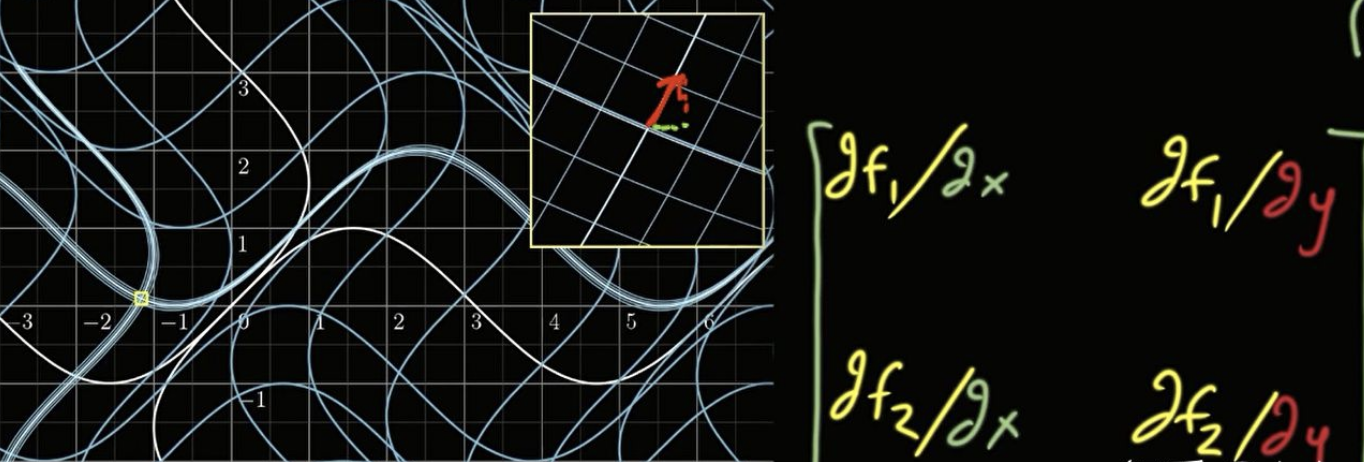 3
2
1
-3 -2 -1 0 1 2 3 4 5 6
-1
∂f₁/∂x ∂f₁/∂y
∂f₂/∂x ∂f₂/∂y